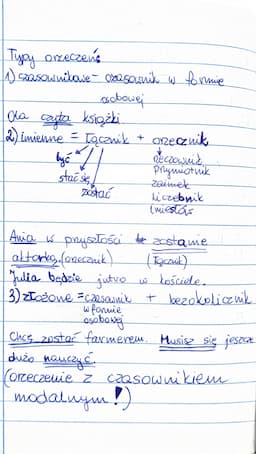 Typy orzeczeń
1) czasownikowe - czasownik w formie
osobowej
Ola czyta książki
2) imienne = łącznik + orzecznik
być rzeczownik
stać się przymiotnik
zostać zaimek
liczebnik
imiesłów
Ania w przyszłości zostanie
aktorką. (orzecznik) (łącznik)
Julia będzie jutro w kościele.
3) złożone = czasownik + bezokolicznik
w formie
osobowej
Chcę zostać farmerem. Musisz się jeszcze
dużo nauczyć.
(orzeczenie z czasownikiem
modalnym!)